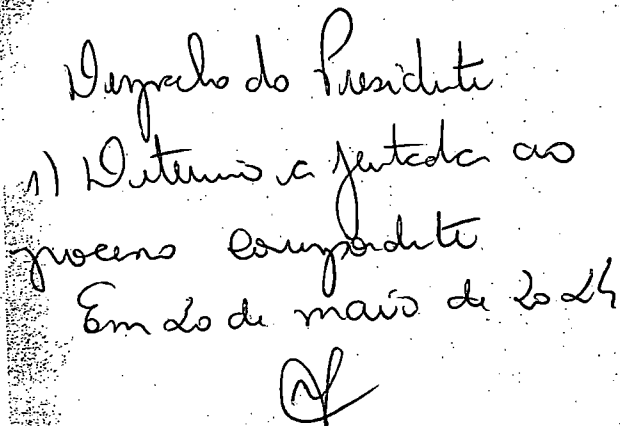 Despacho do Presidente
1) Determino a juntada ao
processo correspondente
Em 20 de maio de 2024